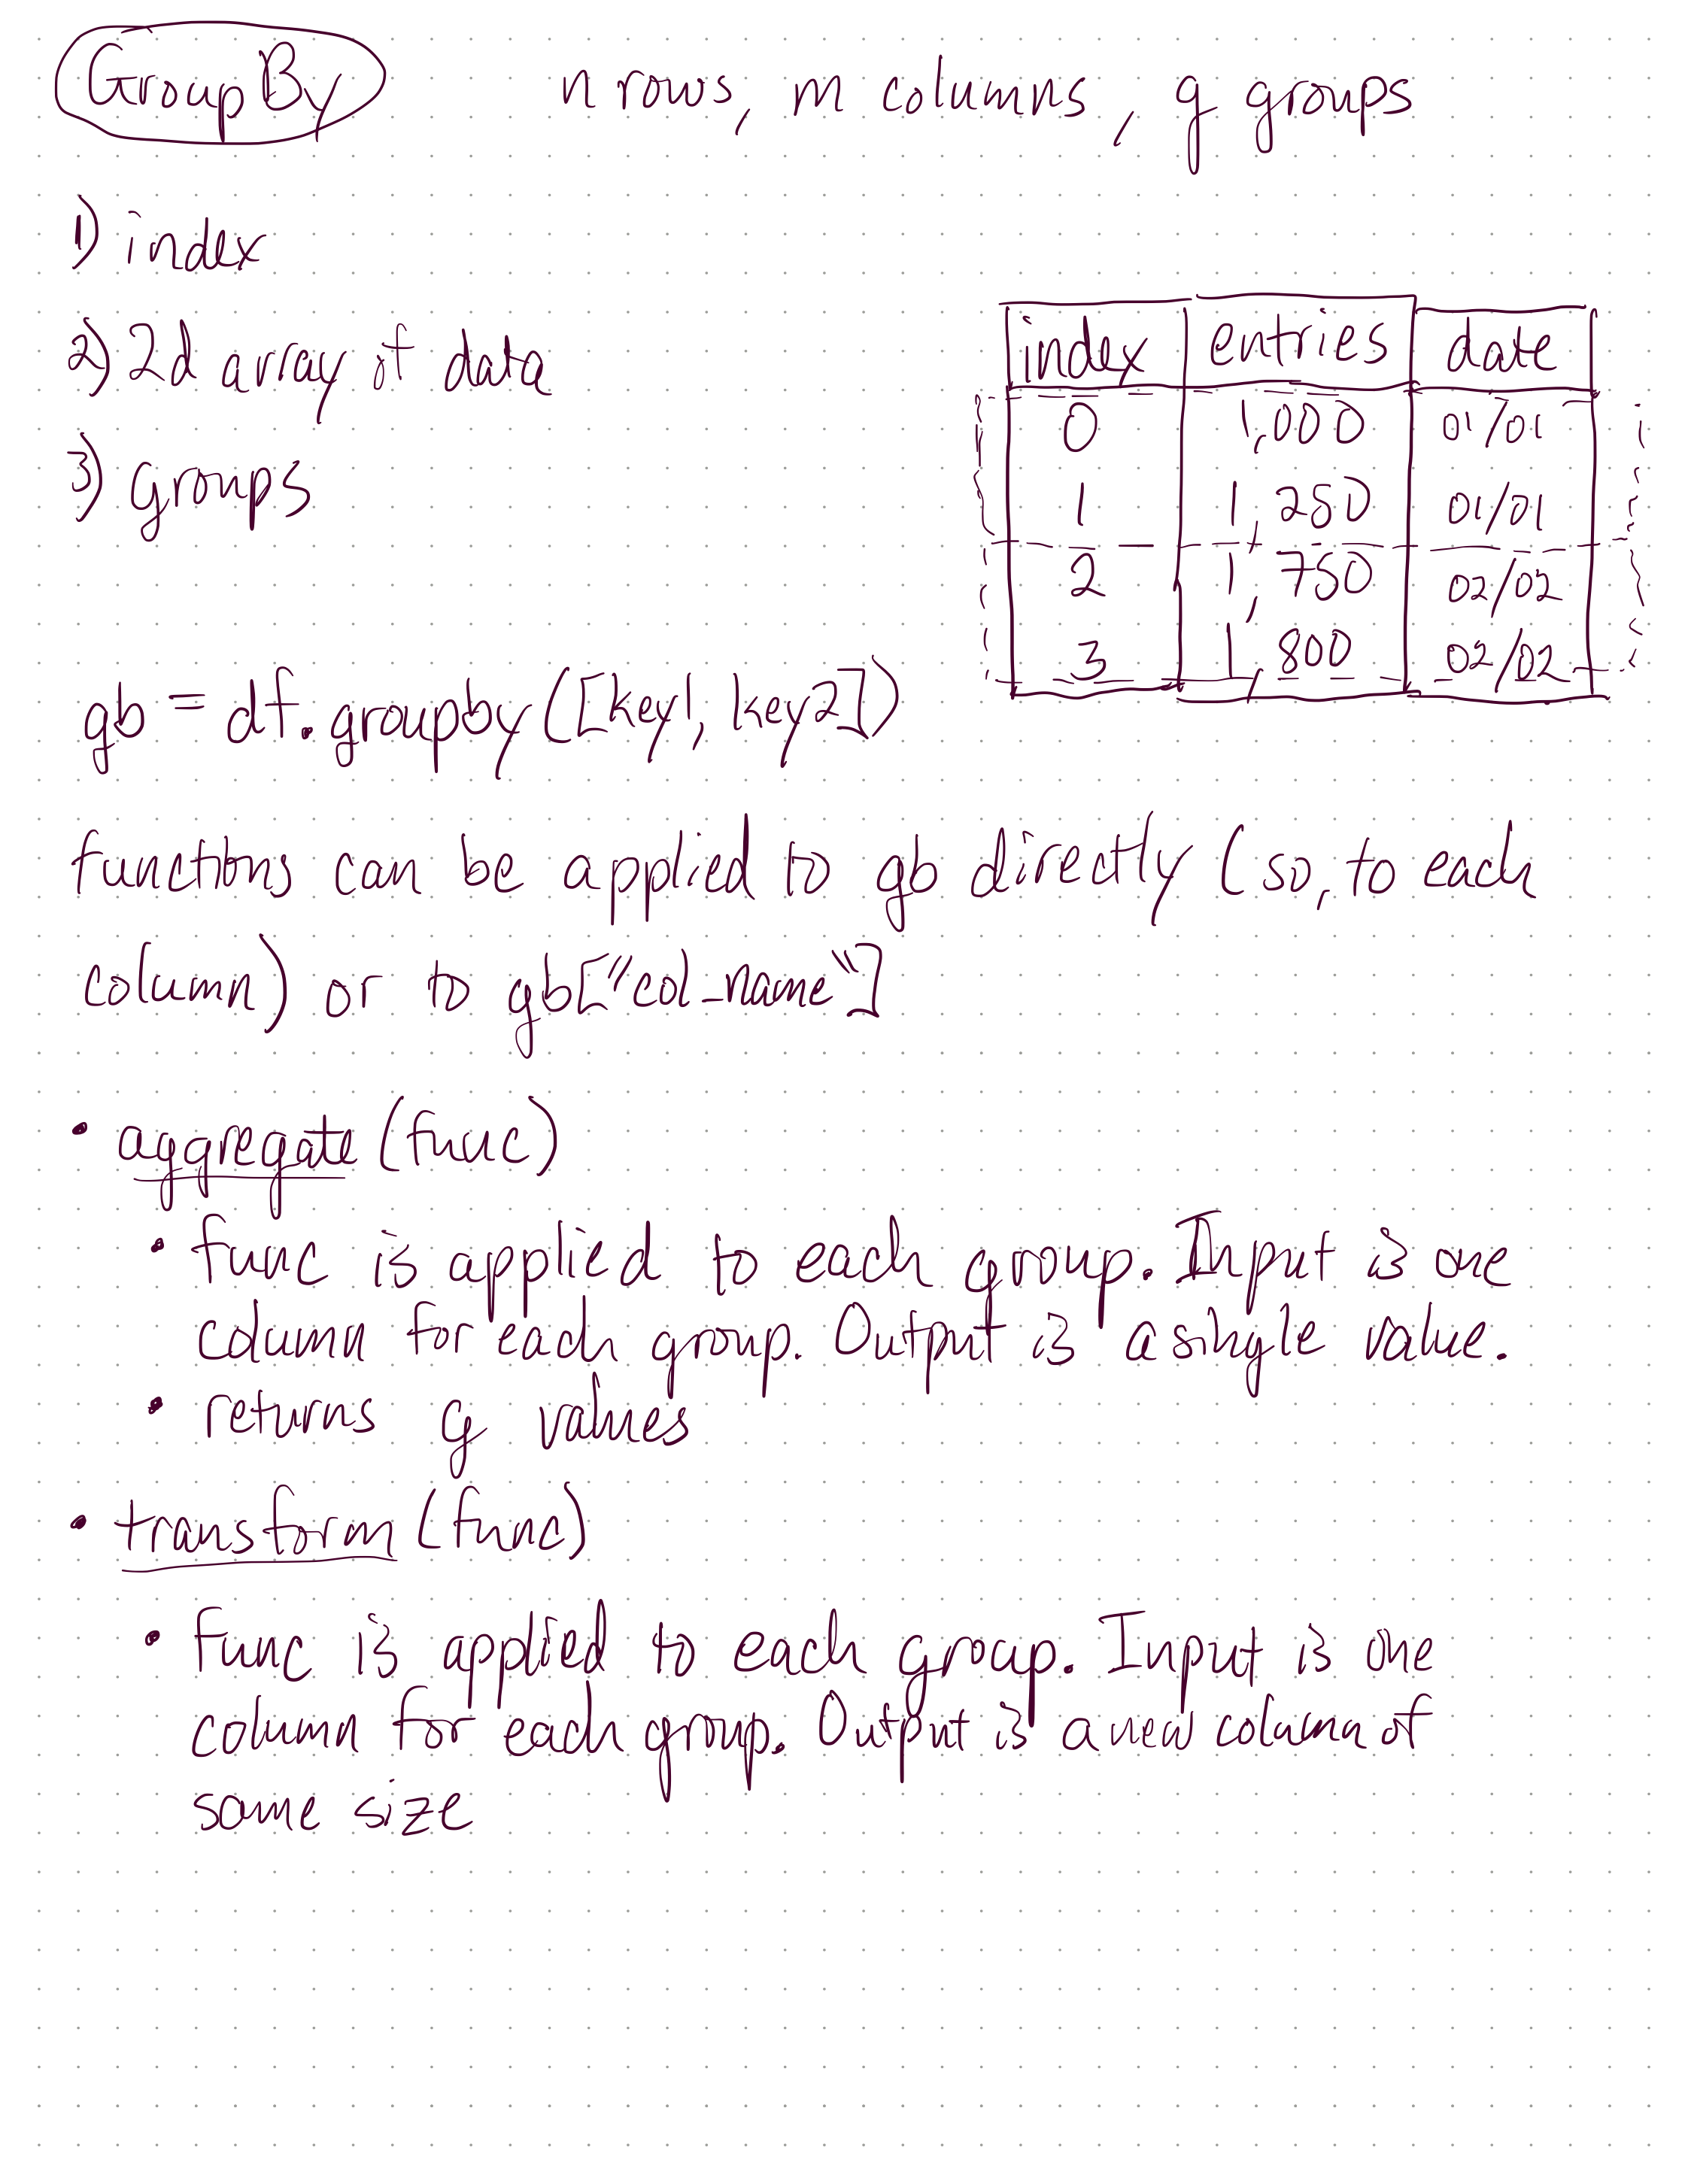 GroupBy n rows, m columns, g groups
1) index
2) 2d array of data
3) groups
index entries date
0 1,000 01/01
1 1,250 01/01
2 1,750 02/02
3 1,800 02/02
gb = df.groupby([key1, key2])
functions can be applied to gb directly (so, to each
column) or to gb["col_name"]
• aggregate (func)
• func is applied to each group. Input is one
column for each group. Output is a single value.
• returns g values
• transform (func)
• func is applied to each group. Input is one
column for each group. Output is a new column of
same size